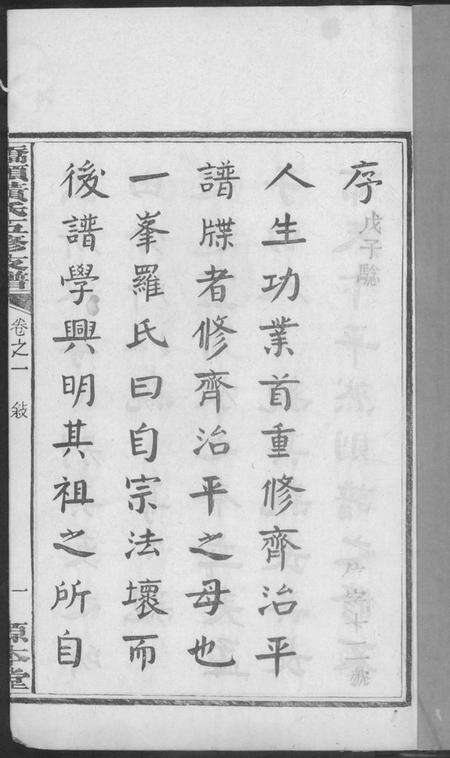 序
人生功業首重修齊治平
譜牒者修齊治平之母也
一峯羅氏曰自宗法壞而
後譜學興明其祖之所自
黃氏五修支譜
卷之一 敍
一
源本堂